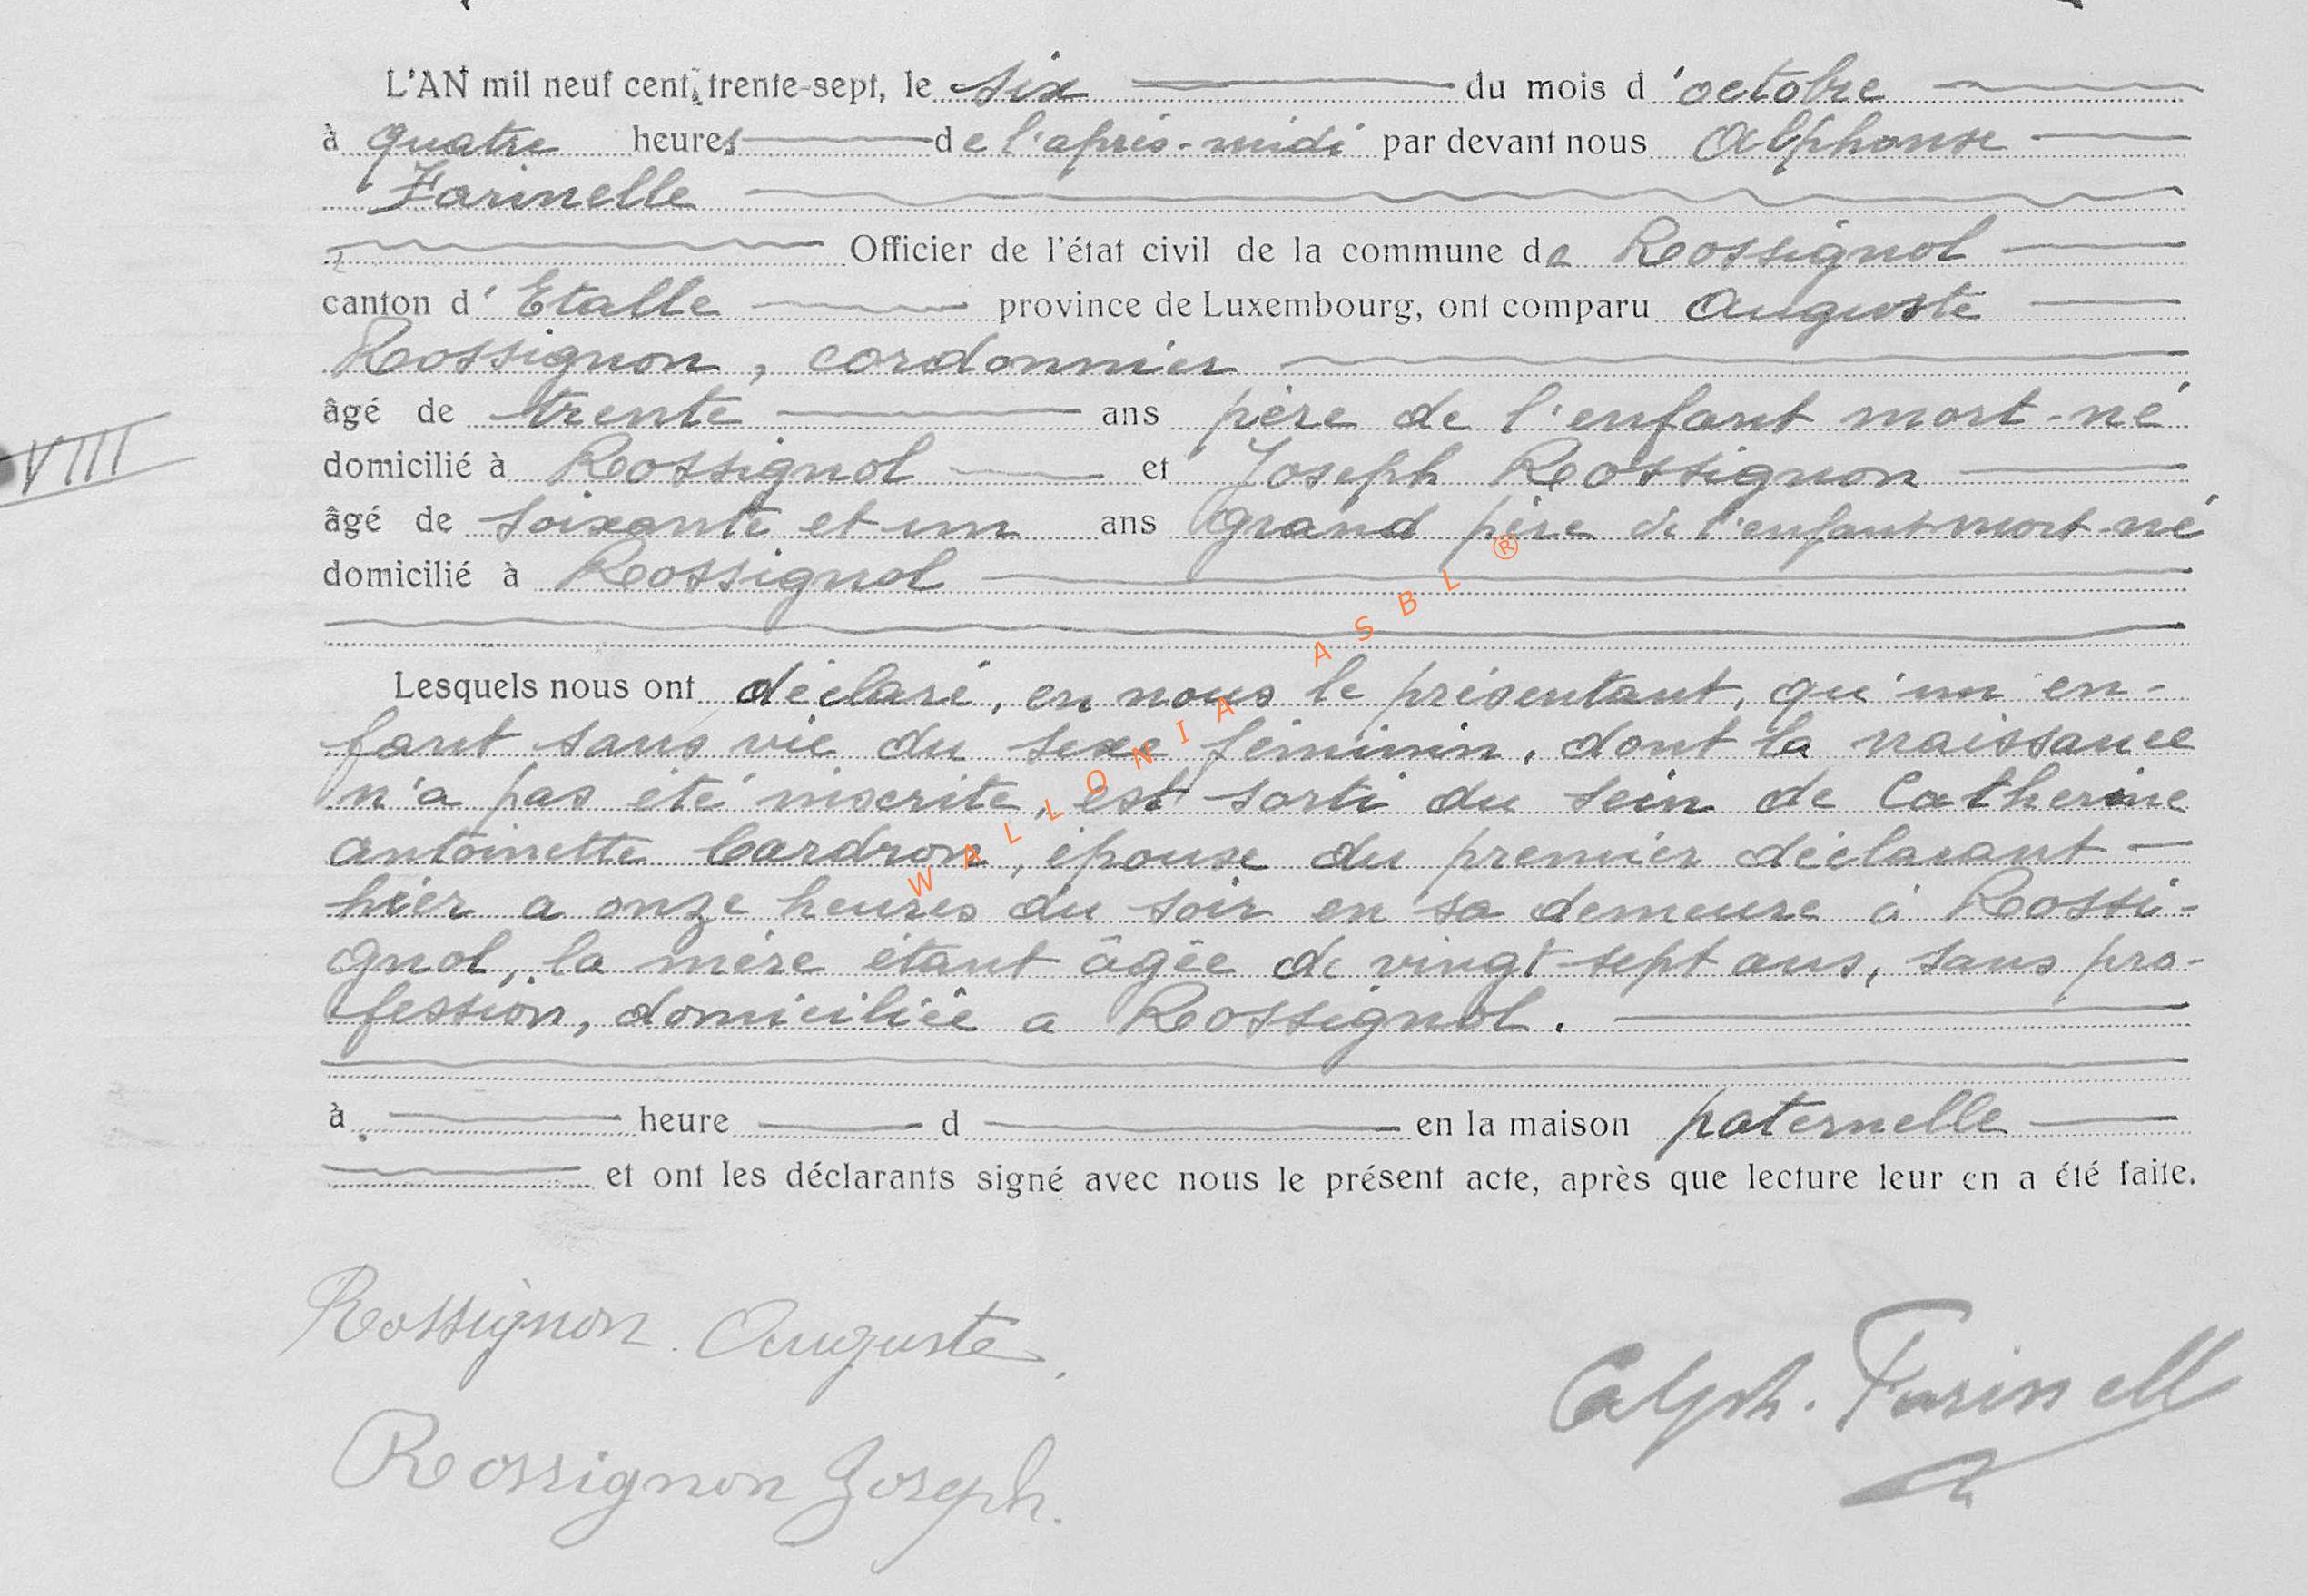 L'AN mil neuf cent trente-sept, le six du mois d'octobre
à quatre heures de l'après-midi par devant nous Alphonse
Farinelle
Officier de l'état civil de la commune de Rossignol
canton d'Etalle province de Luxembourg, ont comparu Auguste
Rossignon, cordonnier
âgé de trente ans père de l'enfant mort-né
VIII
domicilié à Rossignol et Joseph Rossignon
âgé de soixante et un ans grand père de l'enfant mort-né
domicilié à Rossignol
Lesquels nous ont déclaré, en nous le présentant, qu'un en-
fant sans vie du sexe féminin, dont la naissance
n'a pas été inscrite, est sorti du sein de Catherine
Antoinette Cardron, épouse du premier déclarant
hier a onze heures du soir en sa demeure à Rossi-
gnol, la mère étant âgée de vingt-sept ans, sans pro-
fession, domiciliée a Rossignol.
à heure d en la maison paternelle
et ont les déclarants signé avec nous le présent acte, après que lecture leur en a été faite.
WALLONIA ASBL ®
Rossignon Auguste.
Alph. Farinell
Rossignon Joseph.